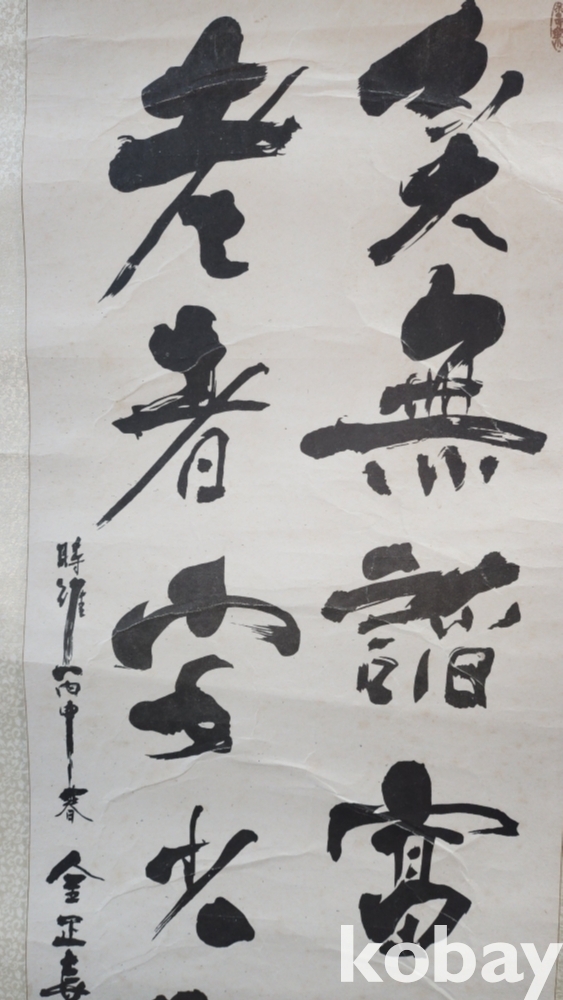 無諂富
老者安少
時維丙申春
金正喜
kobay